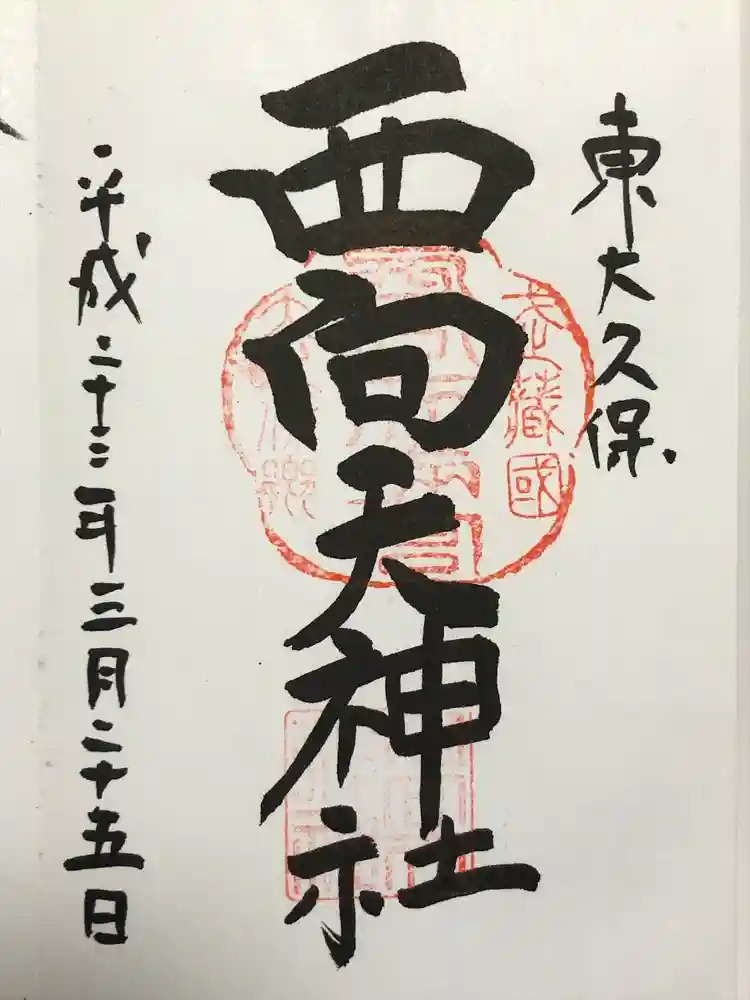 東大久保
西向天神社
平成二十三年三月二十五日
武蔵國